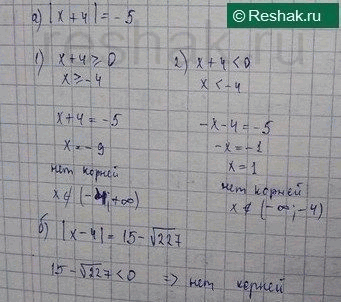 Reshak.ru
а) |x+4| = -5
1) x+4 ≥ 0
x ≥ -4
x+4 = -5
x = -9
нет корней
x ∉ (-4; +∞)
2) x+4 < 0
x < -4
-x-4 = -5
-x = -1
x = 1
нет корней
x ∉ (-∞; -4)
б) |x-4| = 15 - √227
15 - √227 < 0 => нет корней